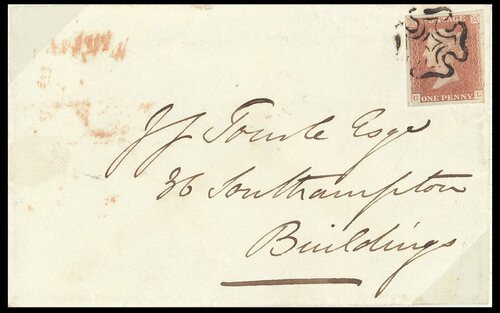 POSTAGE
G L
ONE PENNY
J J Tourle Esqe
36 Southampton
Buildings